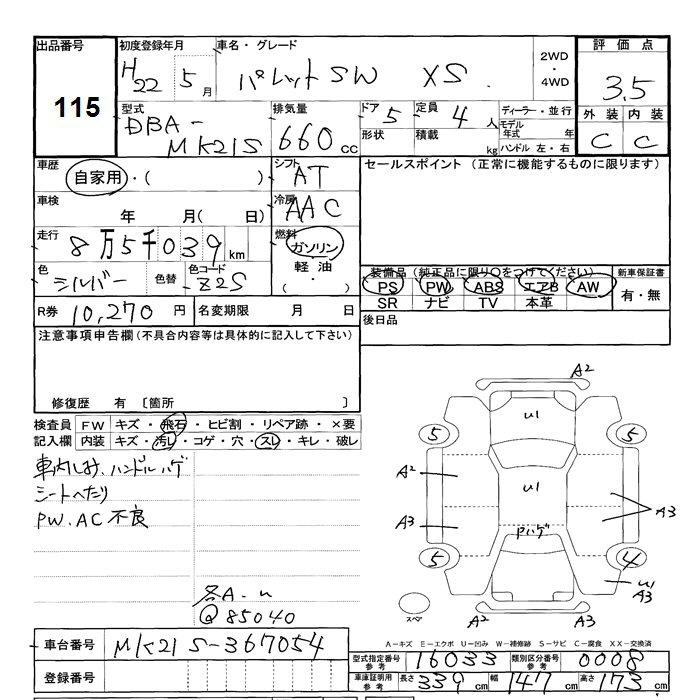 出品番号 初度登録年月 車名・グレード 2WD・4WD 評価点
115 H22 5月 パレットSW XS 3.5
型式 排気量 ドア 5 定員 4人 ディーラー・並行 外装 内装
DBA-MK21S 660cc 形状 積載 kg モデル年式 年 ハンドル 左・右 C C
車歴 シフト セールスポイント（正常に機能するものに限ります）
自家用・( ) AT
車検 年 月( 日) 冷房 AAC
走行 8万5千039km 燃料 ガソリン
色 シルバー 色替 色コード Z2S 軽油 ( ・ )
装備品（純正品に限り○をつけてください） 新車保証書
PS PW ABS エアB AW 有・無
SR ナビ TV 本革
R券 10,270円 名変期限 月 日 後日品
注意事項申告欄(不具合内容等は具体的に記入して下さい)
修復歴 有 〔箇所 〕
検査員 FW キズ・飛石・ヒビ割・リペア跡・×要
記入欄 内装 キズ・汚レ・コゲ・穴・スレ・キレ・破レ
車内しみ、ハンドルハゲ
シートへたり
PW、AC不良
各A-u
Q85040
A2
U1
5 5
A2 U1
A3 Pハゲ A3
5 4
A3
スペ A2 A3
A-キズ E-エクボ U-凹み W-補修跡 S-サビ C-腐食 XX-交換済
車台番号 MK21S-367054 型式指定番号 参考 16033 類別区分番号 参考 0008
登録番号 車庫証明用 参考 長さ 339cm 幅 147cm 高さ 173cm